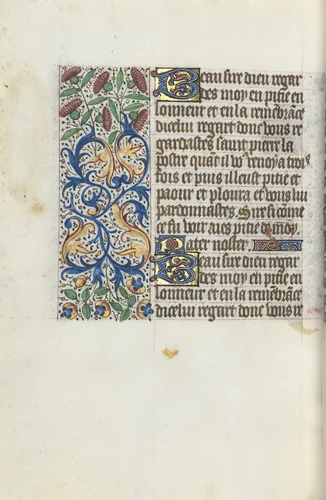 Beau sire dieu regar
des moy en pitie en
lonneur et en la remēbrāce
dicelui regart donc vous re
gardastes saint pierre la
postre quāt il vo9 renoya trois
fois et puis il eust pitie et
paour et ploura et vous lui
pardonnastes. Sire si cōme
cest voir aies pitie de moy.
Pater noster.
Beau sire dieu regar
des moy en pitie en
lonneur et en la remēbrāce
dicelui regart donc vous re